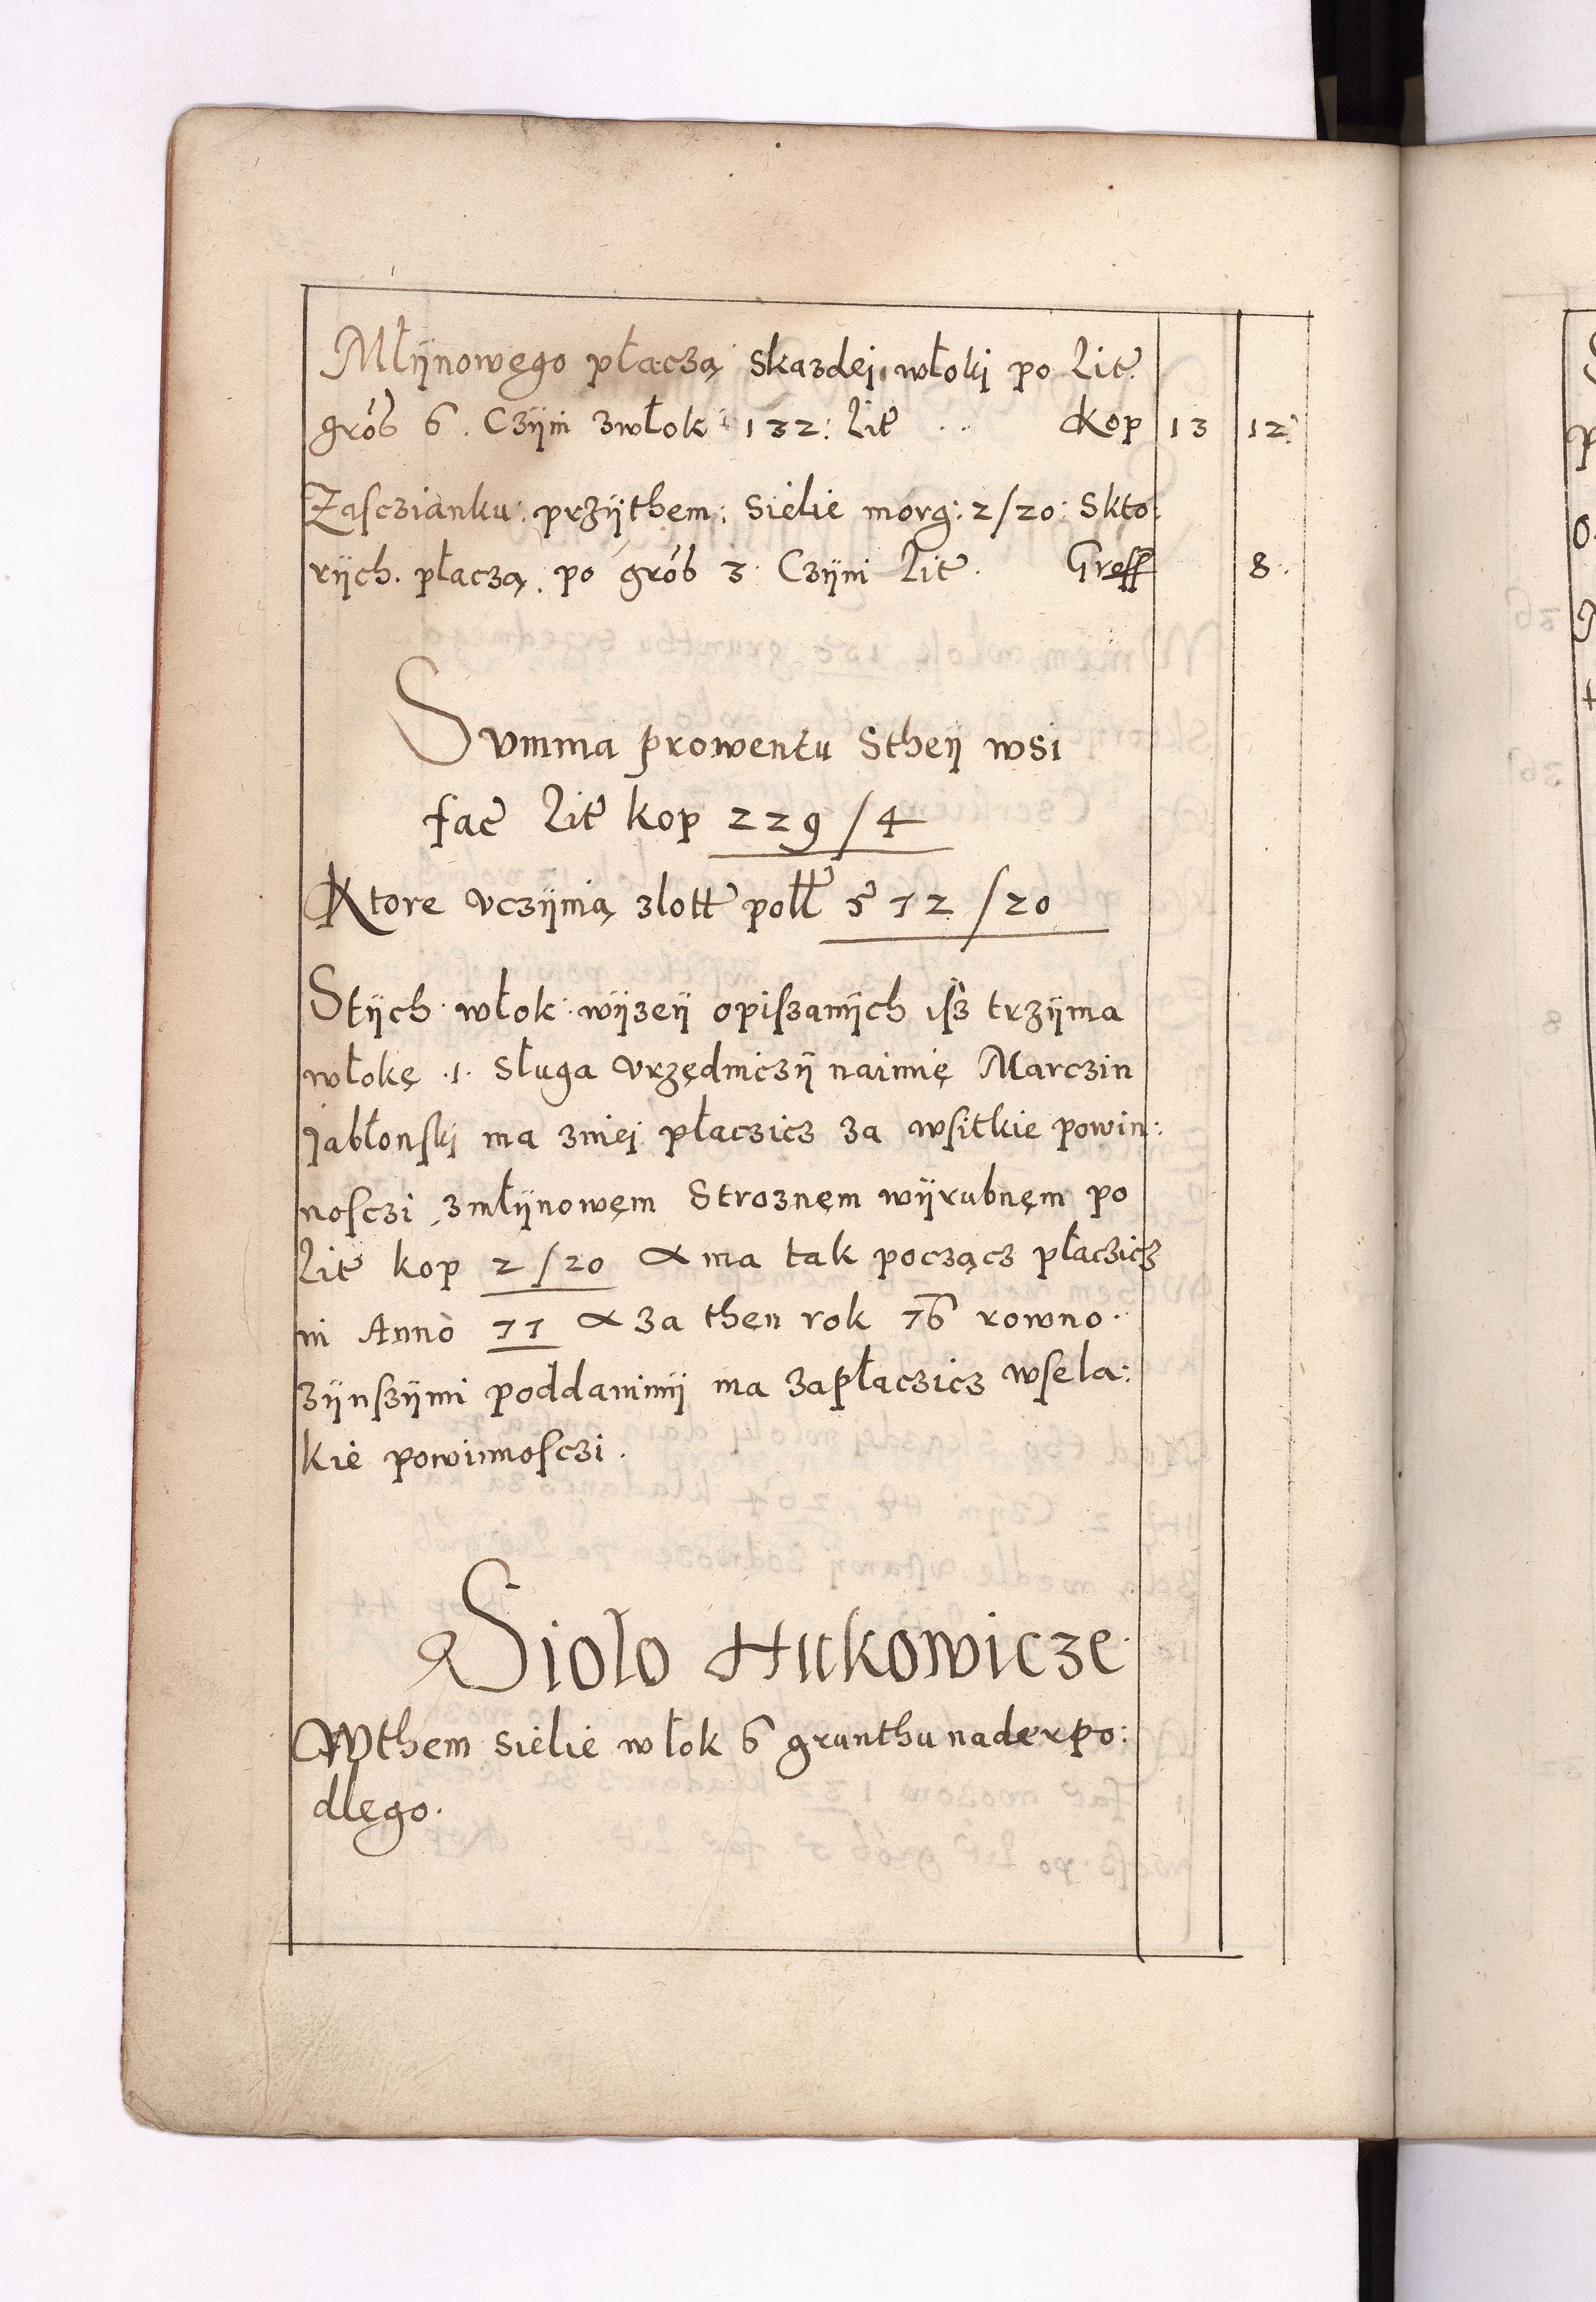 Młijnowęgo płaczą skazdei włoki po Lit
grob 6. Czÿni zwłok 132: Lit .. Kop 13 12
Zasczianku: przÿthem: sielie morg: 2/20: Skto:
rÿch. płaczą. po grob 3. Czÿni Lit. Groß 8.
Summa prowentu stheÿ wsi
fac Lit kop 229/4
Ktore vczÿnią zlott poll 572/20
Stÿch włok wÿzeÿ opiszanÿch isz trzÿma
włokę .1. sługa vrzędniczÿ naimię Marczin
Jabłonski ma zniei płaczicz za wsitkie powin:
nosczi zmłÿnowęm Stroznęm wÿrubnęm po
Lit kop 2/20 a ma tak począcz płaczicz
in Anno 77 a za then rok 76 rowno
zÿnszÿmi poddanimÿ ma zapłaczicz wsela:
kie powinnosczi.
Sioło Hukowicze
Wthem sielie włok 6 grunthu naderpo:
dlęgo.